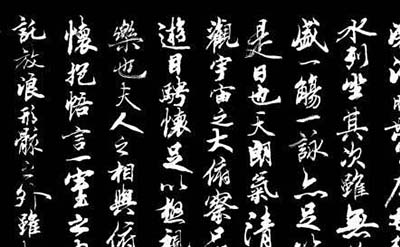 水列坐其次雖無
盛一觴一詠亦足以
是日也天朗氣清
觀宇宙之大俯察品
遊目騁懷足以極視
樂也夫人之相與俯
懷抱悟言一室之
託放浪形骸之外雖